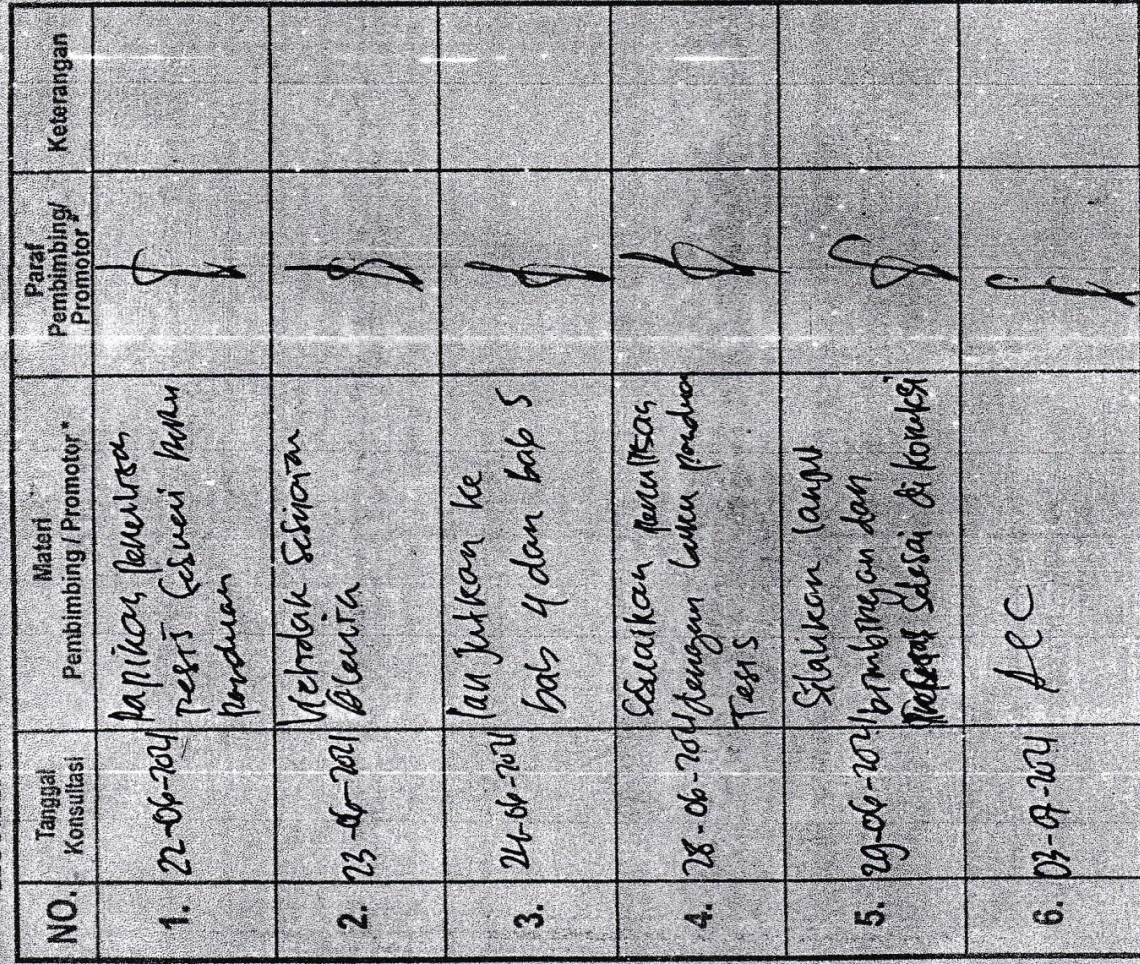 NO.
Tanggal
Konsultasi
Materi
Pembimbing / Promotor*
Paraf
Pembimbing/
Promotor*
Keterangan
1.
22-06-2021
Rapikan penulisan
tesis sesuai buku
panduan
2.
23-06-2021
3.
24-06-2021
lanjutkan ke
bab 4 dan bab 5
4.
28-06-2021
Sesuaikan penulisan
dengan buku panduan
Tesis
5.
29-06-2021
Silahkan
bimbingan dan
selesai di koreksi
6.
03-07-2021
Acc